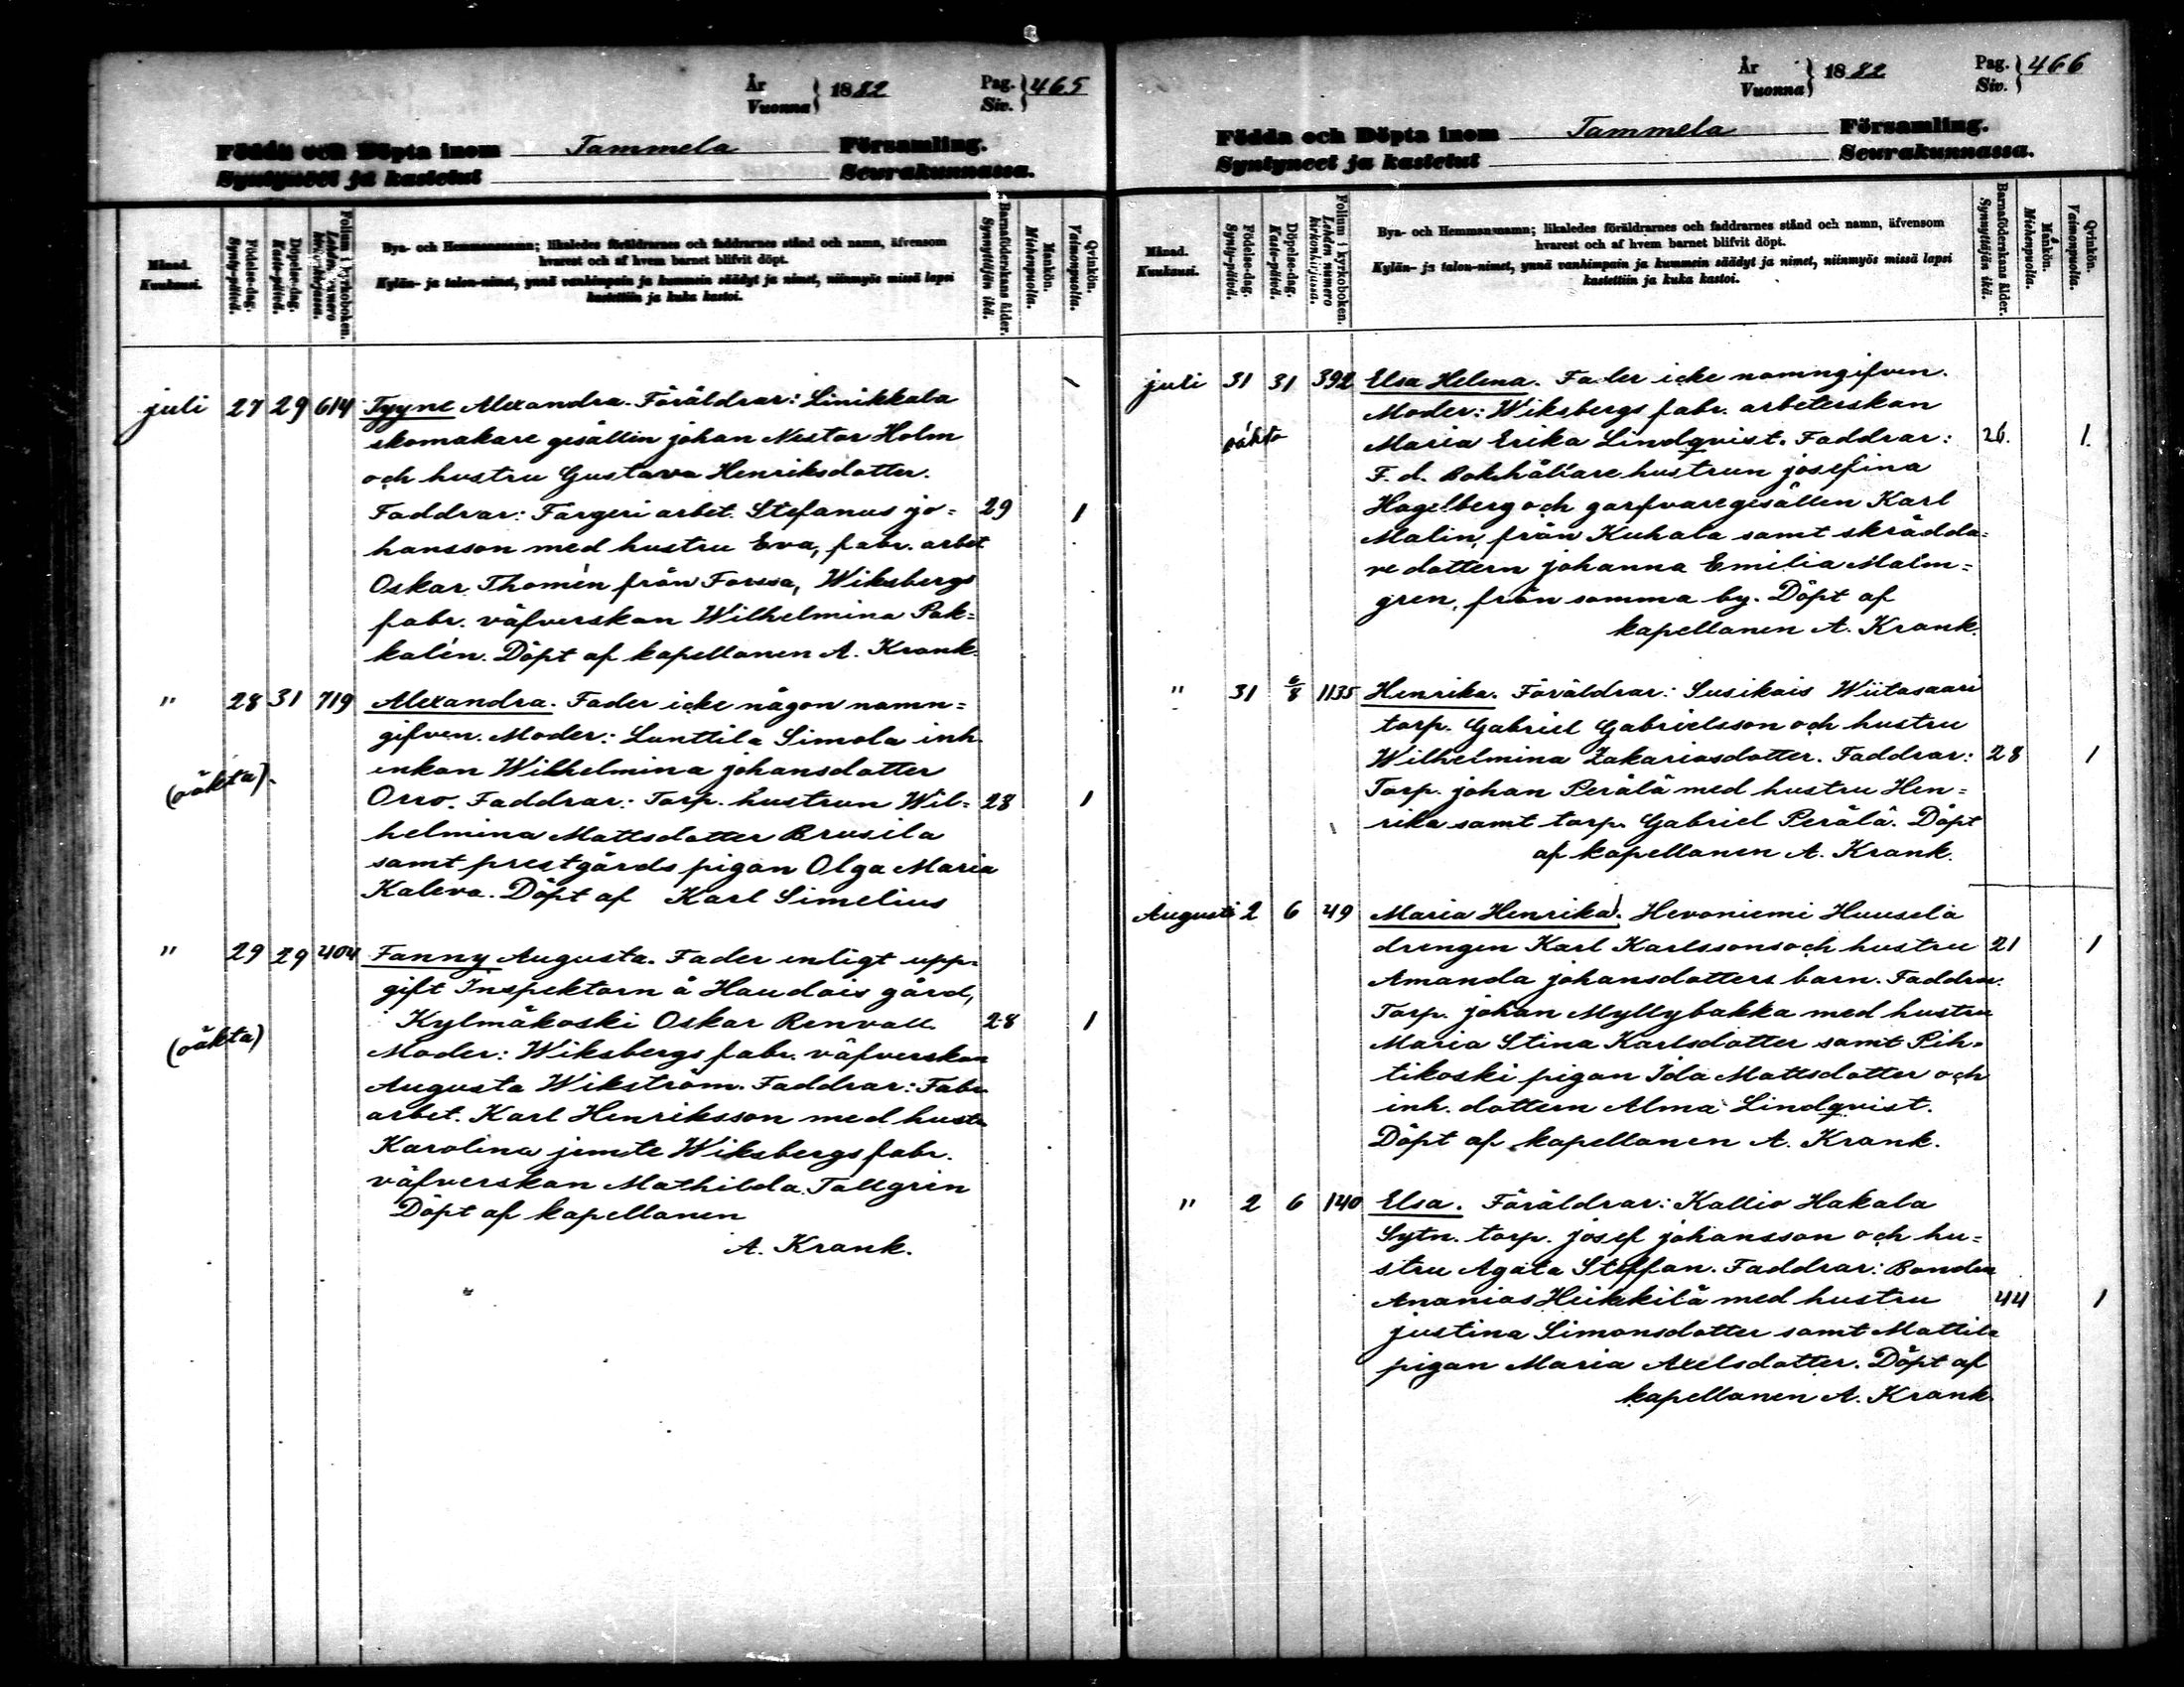 År
Vuonna } 1882 Pag.
Siv. } 465
Födda och Döpta inom Tammela Församling.
Syntyneet ja kastetut Seurakunnassa.
Månad.
Kuukausi.
Födelse-dag.
Synty-päivä.
Döpelse-dag.
Kaste-päivä.
Folium i kyrkoboken.
Lehden numero
kirkonkirjassa.
Bya- och Hemmansnamn; likaledes föräldrarnes och faddrarnes stånd och namn, äfvensom
hvarest och af hvem barnet blifvit döpt.
Kylän- ja talon-nimet, ynnä vanhimpain ja kummein säädyt ja nimet, niinmyös missä lapsi
kastettiin ja kuka kastoi.
Barnaföderskans ålder.
Synnyttäjän ikä.
Mankön.
Miehenpuolta.
Qvinkön.
Vaimonpuolta.
juli 27 29 614 Tyyne Alexandra. Föräldrar: Linikkala
skomakare gesällin johan Nestor Holm
och hustru Gustava Henriksdotter.
Faddrar: Färgeri arbet. Stefanus jo= 29 1
hansson med hustru Eva, fabr. arbet
Oskar Thomén från Forssa, Wiksbergs
fabr. väfverskan Wilhelmina Pak=
kalén. Döpt af kapellanen A. Krank.
" 28 31 719 Alexandra. Fader icke någon namn=
gifven. Moder: Lunttila Simola inh.
enkan Wilhelmina johansdotter
(oäkta). Orro. Faddrar: Torp. hustrun Wil= 28 1
helmina Mattsdotter Brusila
samt prestgårds pigan Olga Maria
Kaleva. Döpt af Karl Simelius
" 29 29 404 Fanny Augusta. Fader enligt upp=
gift Inspektorn å Haudois gård,
Kylmäkoski Oskar Renvall. 28 1
(oäkta) Moder: Wiksbergs fabr. väfverskan
Augusta Wikström. Faddrar: Fabr
arbet. Karl Henriksson med hustr
Karolina jemte Wiksbergs fabr.
väfverskan Mathilda Tallgrin
Döpt af kapellanen
A. Krank.
År
Vuonna } 1882 Pag.
Siv. } 466
Födda och Döpta inom Tammela Församling.
Syntyneet ja kastetut Seurakunnassa.
Månad.
Kuukausi.
Födelse-dag.
Synty-päivä.
Döpelse-dag.
Kaste-päivä.
Folium i kyrkoboken.
Lehden numero
kirkonkirjassa.
Bya- och Hemmansnamn; likaledes föräldrarnes och faddrarnes stånd och namn, äfvensom
hvarest och af hvem barnet blifvit döpt.
Kylän- ja talon-nimet, ynnä vanhimpain ja kummein säädyt ja nimet, niinmyös missä lapsi
kastettiin ja kuka kastoi.
Barnaföderskans ålder.
Synnyttäjän ikä.
Mankön.
Miehenpuolta.
Qvinkön.
Vaimonpuolta.
juli 31 31 392 Elsa Helena. Fader icke namngifven.
Moder: Wiksbergs fabr. arbeterskan
oäkta Maria Erika Lindqvist. Faddrar: 26. 1.
F. d. Bokhållare hustrun josefina
Hagelberg och garfvaregesällen Karl
Malin, från Kuhala samt skrädda=
re dottern johanna Emilia Malm=
gren, från samma by. Döpt af
kapellanen A. Krank.
" 31 6/8 1135 Henrika. Föräldrar: Susikais Wiitasaari
torp. Gabriel Gabrielsson och hustru
Wilhelmina Zakariasdotter. Faddrar: 28 1
Torp. johan Perälä med hustru Hen=
rika samt torp. Gabriel Perälä. Döpt
af kapellanen A. Krank.
Augusti 2 6 49 Maria Henrika. Hevoniemi Huusela
drengen Karl Karlssons och hustru 21 1
Amanda johansdotters barn. Faddrar:
Torp. johan Myllybakka med hustru
Maria Stina Karlsdotter samt Pih=
tikoski pigan Ida Mattsdotter och
inh. dottern Alma Lindqvist.
Döpt af kapellanen A. Krank.
" 2 6 140 Elsa. Föräldrar: Kallio Hakala
Sytn. torp. josef johansson och hu=
stru Agata Steffan. Faddrar: Bonden
Ananias Heikkilä med hustru 44 1
justina Simonsdotter samt Mattila
pigan Maria Axelsdotter. Döpt af
kapellanen A. Krank.